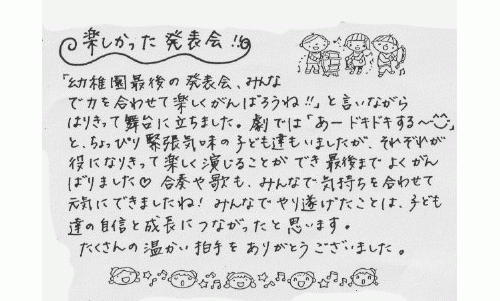 楽しかった発表会!!
「幼稚園最後の発表会、みんな
で力を合わせて楽しくがんばろうね!!」と言いながら
はりきって舞台に立ちました。劇では「あードキドキする〜😊」
と、ちょっぴり緊張気味の子ども達もいましたが、それぞれが
役になりきって楽しく演じることができ最後までよくがん
ばりました♡ 合奏や歌も、みんなで気持ちを合わせて
元気にできましたね! みんなでやり遂げたことは、子ども
達の自信と成長につながったと思います。
たくさんの温かい拍手をありがとうございました。